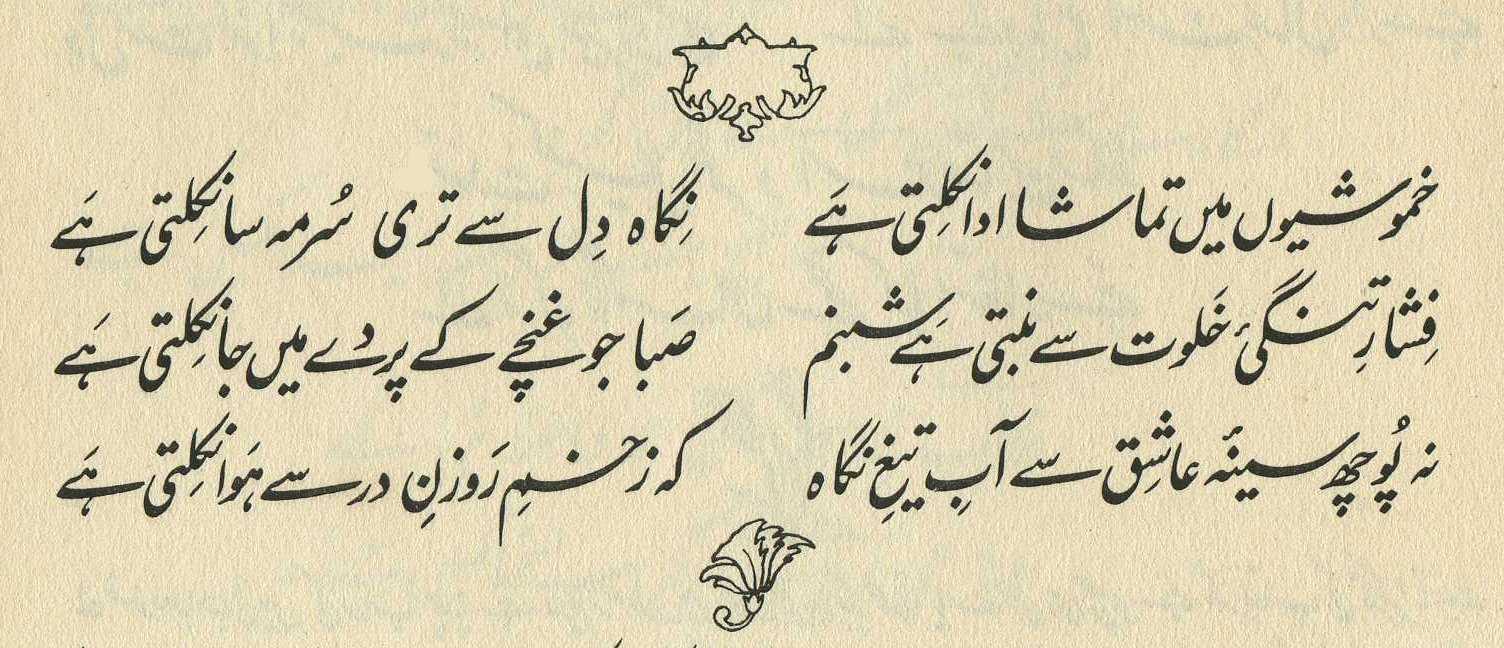 خموشیوں میں تماشا ادا نکلتی ہَے نِگاہ دِل سے تری سُرمہ سا نکِلتی ہَے
فِشارِ تنگئ خَلوت سے بنتی ہَے شبنم صَبا جو غنچے کے پردے میں جا نکِلتی ہَے
نہ پُوچھ سینۂ عاشِق سے آبِ تیغِ نگاہ کہ زخمِ رَوزنِ در سے ہَوا نکِلتی ہَے